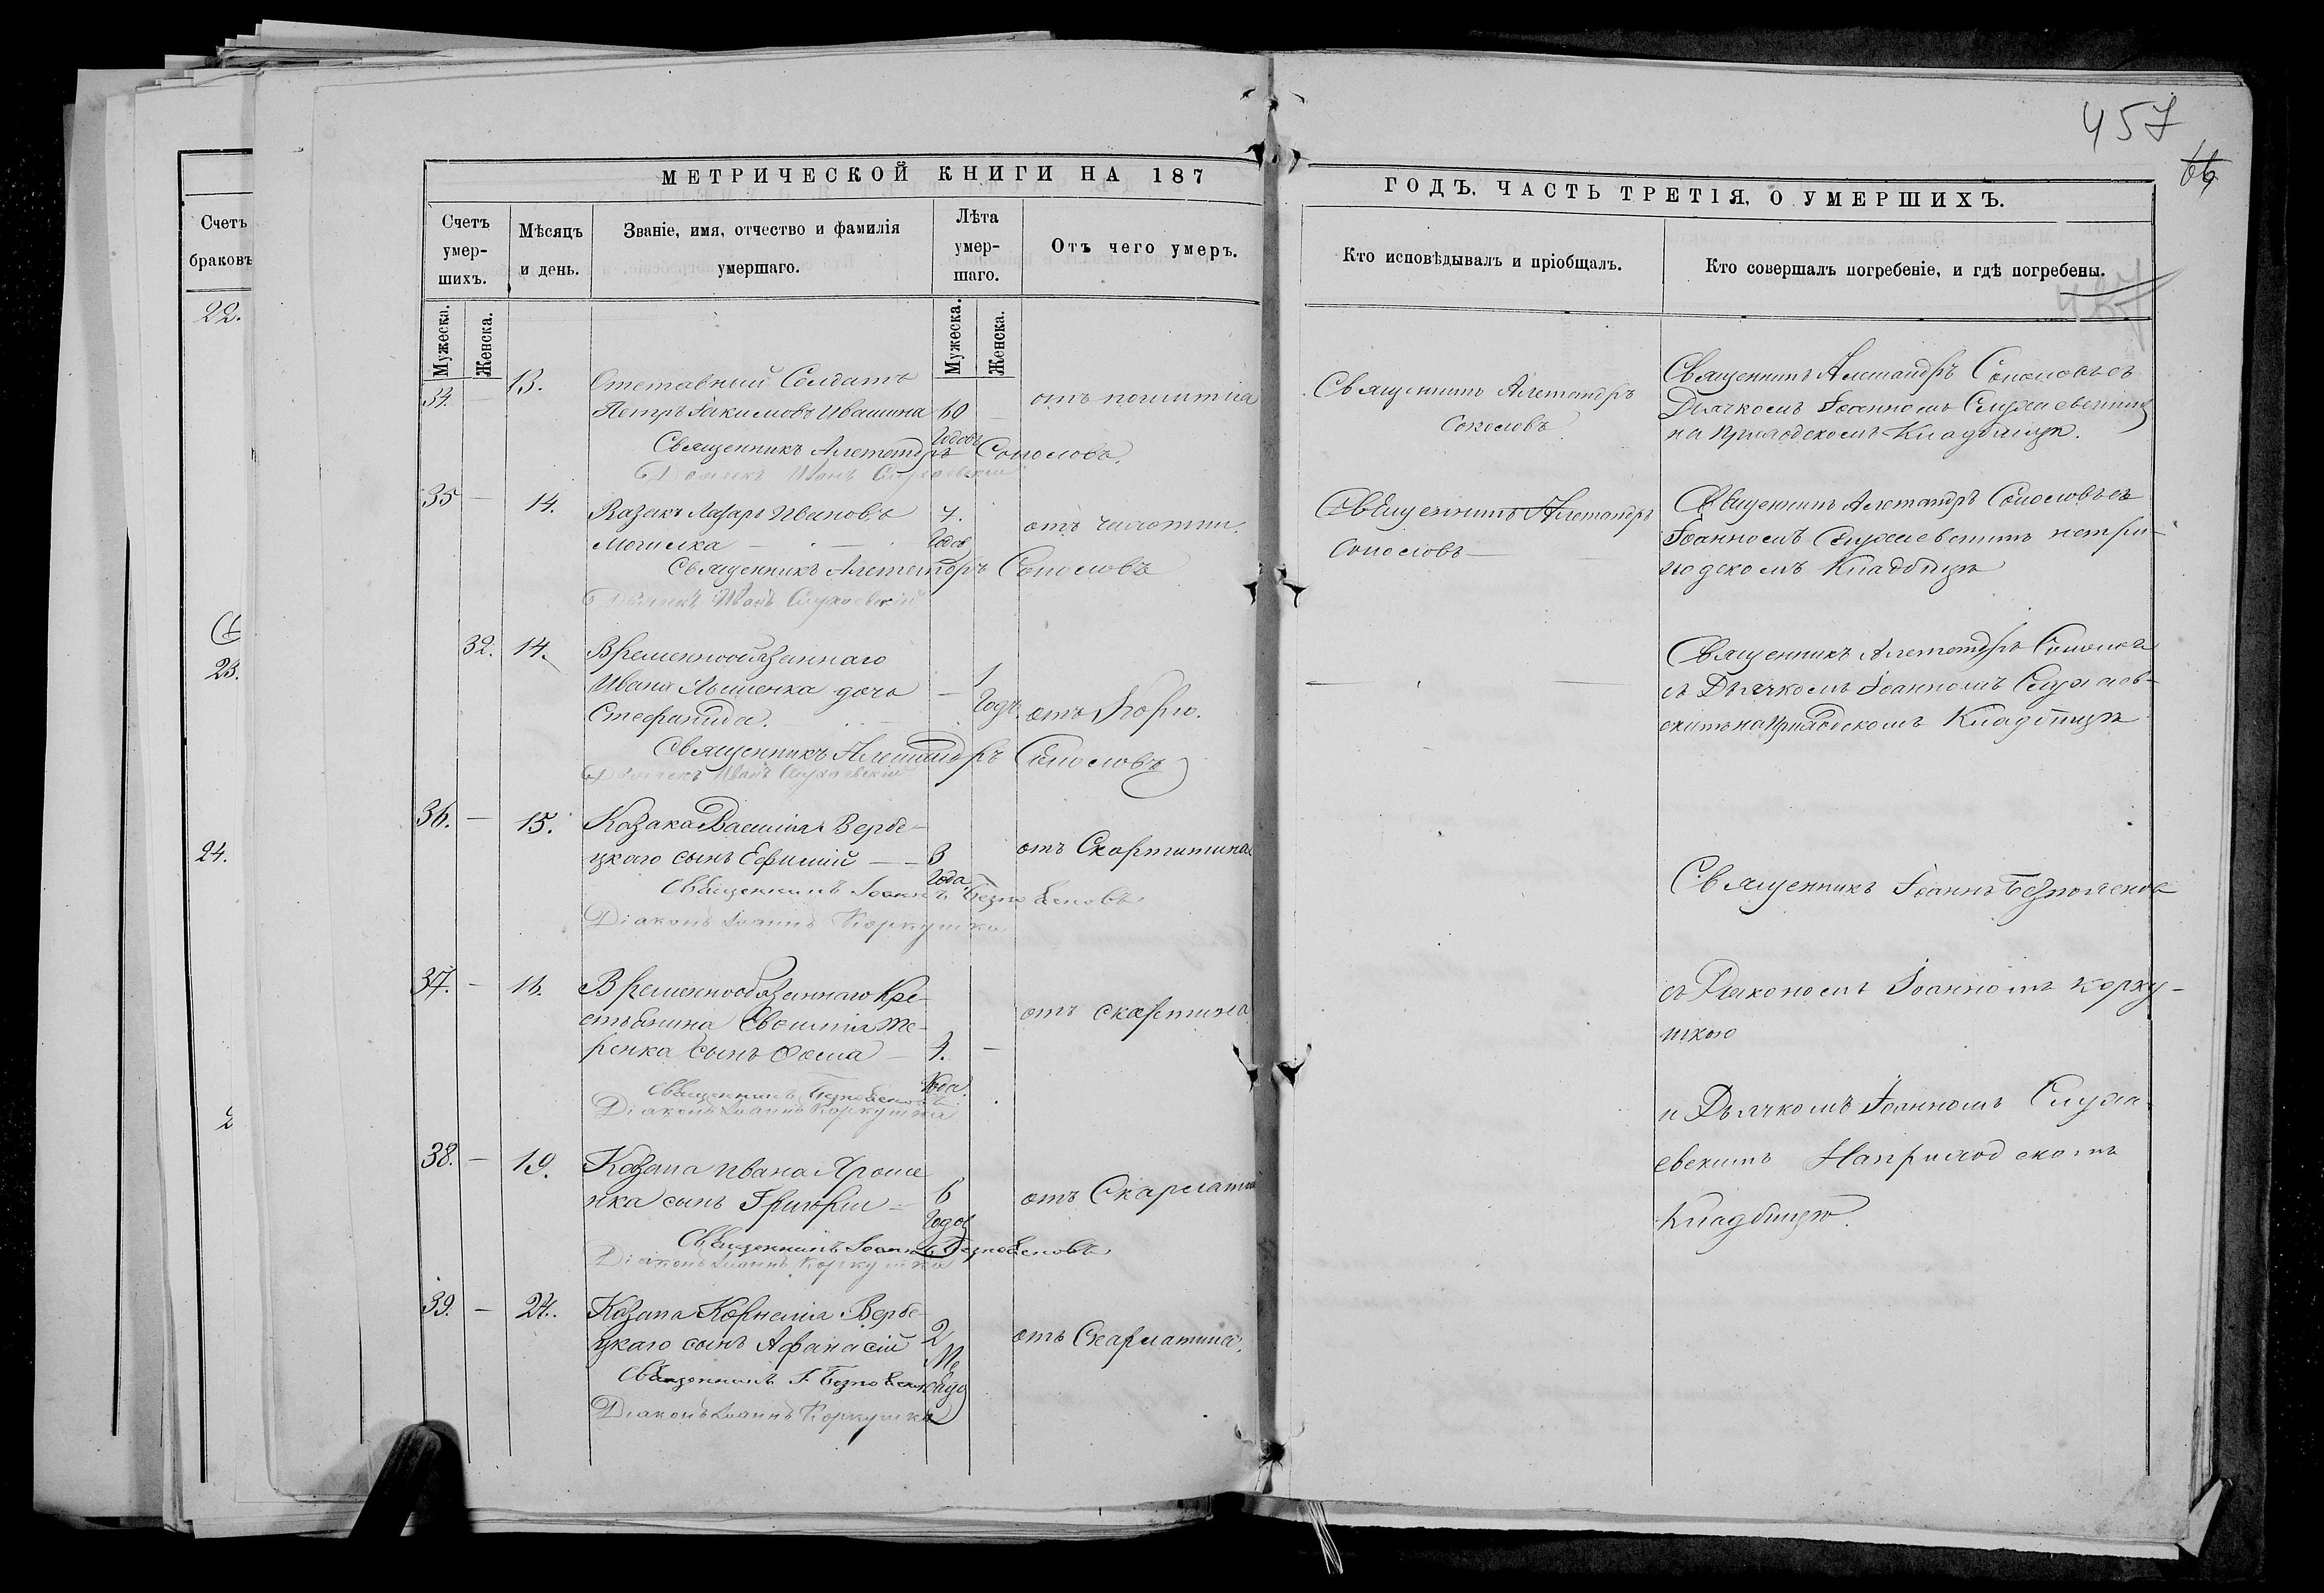 457
66
Счетъ
браковъ
22.
23.
24.
МЕТРИЧЕСКОЙ КНИГИ НА 187
Счетъ умер-шихъ.
Мѣсяцъ и день.
Званіе, имя, отчество и фамилія умершаго.
Лѣта умер-шаго.
Отъ чего умеръ.
Мужеска.
Женска.
Мужеска.
Женска.
34. — 13. Отставный Солдатъ
Петръ Іакимовъ Ивашина 60
Годовъ
Священникъ Александръ Соколовъ.
Дьячекъ Иванъ
35 — 14. Казакъ Лазарь Ивановъ 7. отъ чахотки.
Могилка — Годовъ
Священникъ Александръ Соколовъ
Дьячекъ Иванъ
32. 14. Временнообязаннаго
Ивана дочь — 1
Стефанида. Годъ. отъ Кори.
Священникъ Александръ Соколовъ
Дьячекъ Иванъ
36. — 15. Козака Василія Вербе-
цкаго сынъ Ефимій — 3 отъ Скарлатина
Года
Священникъ Іоаннъ
Діаконъ Іоаннъ Коркушка
37. — 16. Временнообязаннаго Кре-
стьянина сынъ Фома — 4. — отъ скарлатина
Года.
Священникъ
Діаконъ Іоаннъ Коркушка
38. — 19. Козака Ивана Яроше
нка сынъ Григорій — 6 отъ Скарлатина
Годов
Священникъ Іоаннъ
Діаконъ Іоаннъ Коркушка
39. — 24. Козака Корнилія Вербе-
цкаго сынъ Афанасій 2 отъ Скарлатина.
Священникъ І.
Діаконъ Іоаннъ Коркушка
ГОДЪ. ЧАСТЬ ТРЕТІЯ, О УМЕРШИХЪ.
Кто исповѣдывалъ и пріобщалъ.
Кто совершалъ погребеніе, и гдѣ погребены.
Священникъ Александръ
Соколовъ
Священникъ Александръ Соколовъ съ
Дьячкомъ Іоанномъ
на приходскомъ Кладбищѣ.
Священникъ Александръ
Соколовъ —
Священникъ Александръ Соколовъ съ
Іоанномъ на при-
ходскомъ Кладбищѣ
Священникъ Александръ Соколовъ
съ Дьячкомъ Іоанномъ
на приходскомъ Кладбищѣ
Священникъ Іоаннъ
съ Діакономъ Іоанномъ Корку-
шкою
и Дьячкомъ Іоанномъ
На приходскомъ
Кладбищѣ.